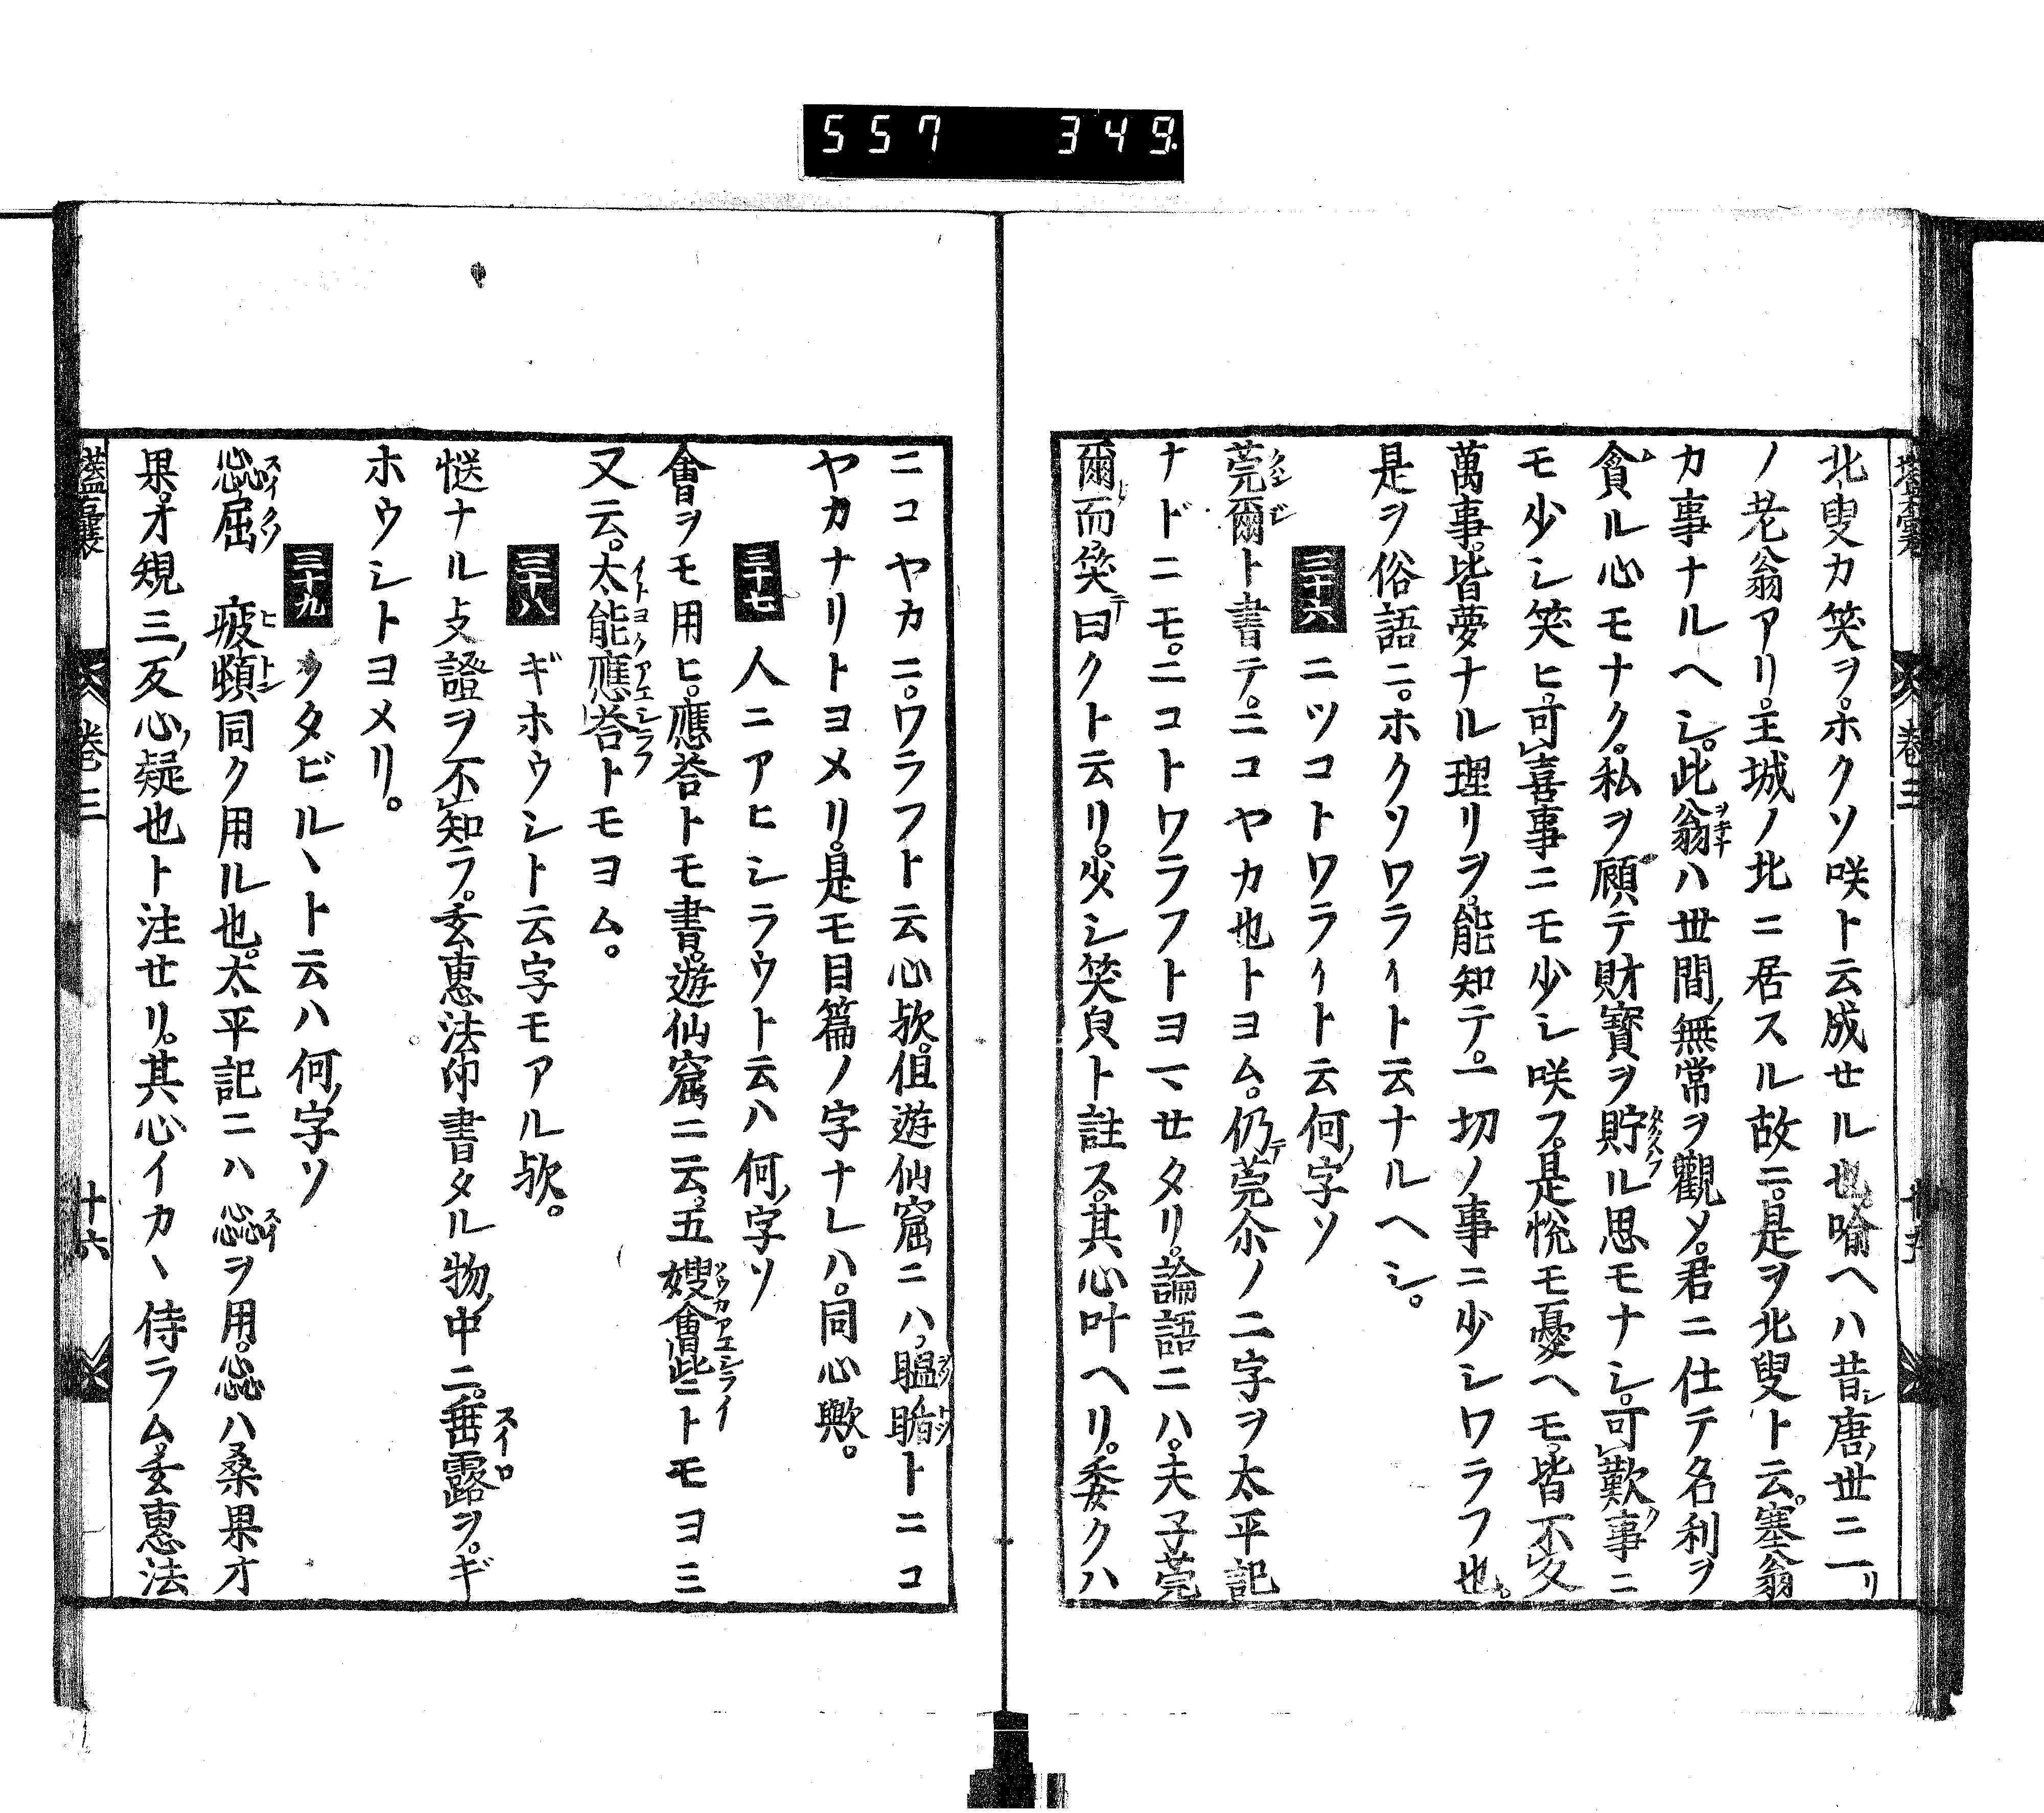 557 349.
北叟カ笑ヲ。ホクソ咲ト云成セル也喩ヘハ昔唐ノ世ニ一リ
ノ老翁アリ。主城ノ北ニ居スル故ニ。是ヲ北叟ト云。塞翁
カ事ナルヘシ。此翁ハ世間ノ無常ヲ觀メ。君ニ仕テ名利ヲ
貪ル心モナク。私ヲ顧テ財寳ヲ貯ル思モナシ。可歎事ニ
モ少シ笑ヒ。可喜事ニモ少シ咲フ。是ハ悦モ憂ヘモ。皆不久
萬事。皆夢ナル理リヲ。能知テ。一切ノ事ニ少シワラフ也。
是ヲ俗語ニ。ホクソワライト云ナルヘシ。
三十六 ニツコトワライト云何ノ字ソ
莞爾ト書テ。ニコヤカ也トヨム。仍テ莞尒ノ二字ヲ太平記
ナドニモ。ニコトワラフトヨマセタリ。論語ニハ。夫子莞
爾而笑テ曰クト云リ。少シ笑皃ト註ス。其心叶ヘリ。委クハ
ニコヤカニ。ワラフト云心欤。但遊仙窟ニハ。䁥䀨トニコ
ヤカナリトヨメリ。是モ目篇ノ字ナレハ。同心歟。
三十七 人ニアヒシラウト云ハ何ノ字ソ
會ヲモ用ヒ。應荅トモ書。遊仙窟ニ云。五嫂會些ニトモヨミ
又云。太能應荅トモヨム。
三十八 ギホウシト云字モアル欤。
慥ナル攴證ヲ不知ラ。玄惠法印書タル物ノ中ニ。垂露ヲ。ギ
ホウシトヨメリ。
三十九 クタビルヽト云ハ何ノ字ソ
惢屈 疲頓同ク用ル也。太平記ニハ惢ヲ用。惢ハ桑果才
果。才規三ノ反心ノ疑也ト注セリ。其心イカヽ侍ラム。玄惠法
卷三 十六